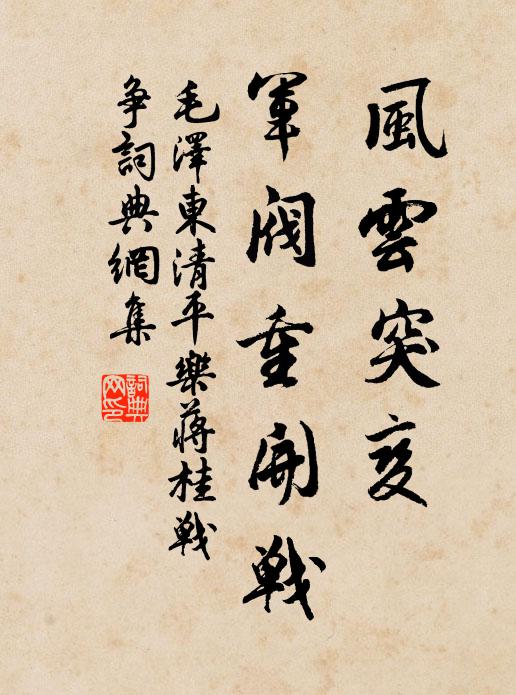 風雲突变
軍閥重開戰
毛澤東清平樂蔣桂戰
争詞典網集
詞典
网印